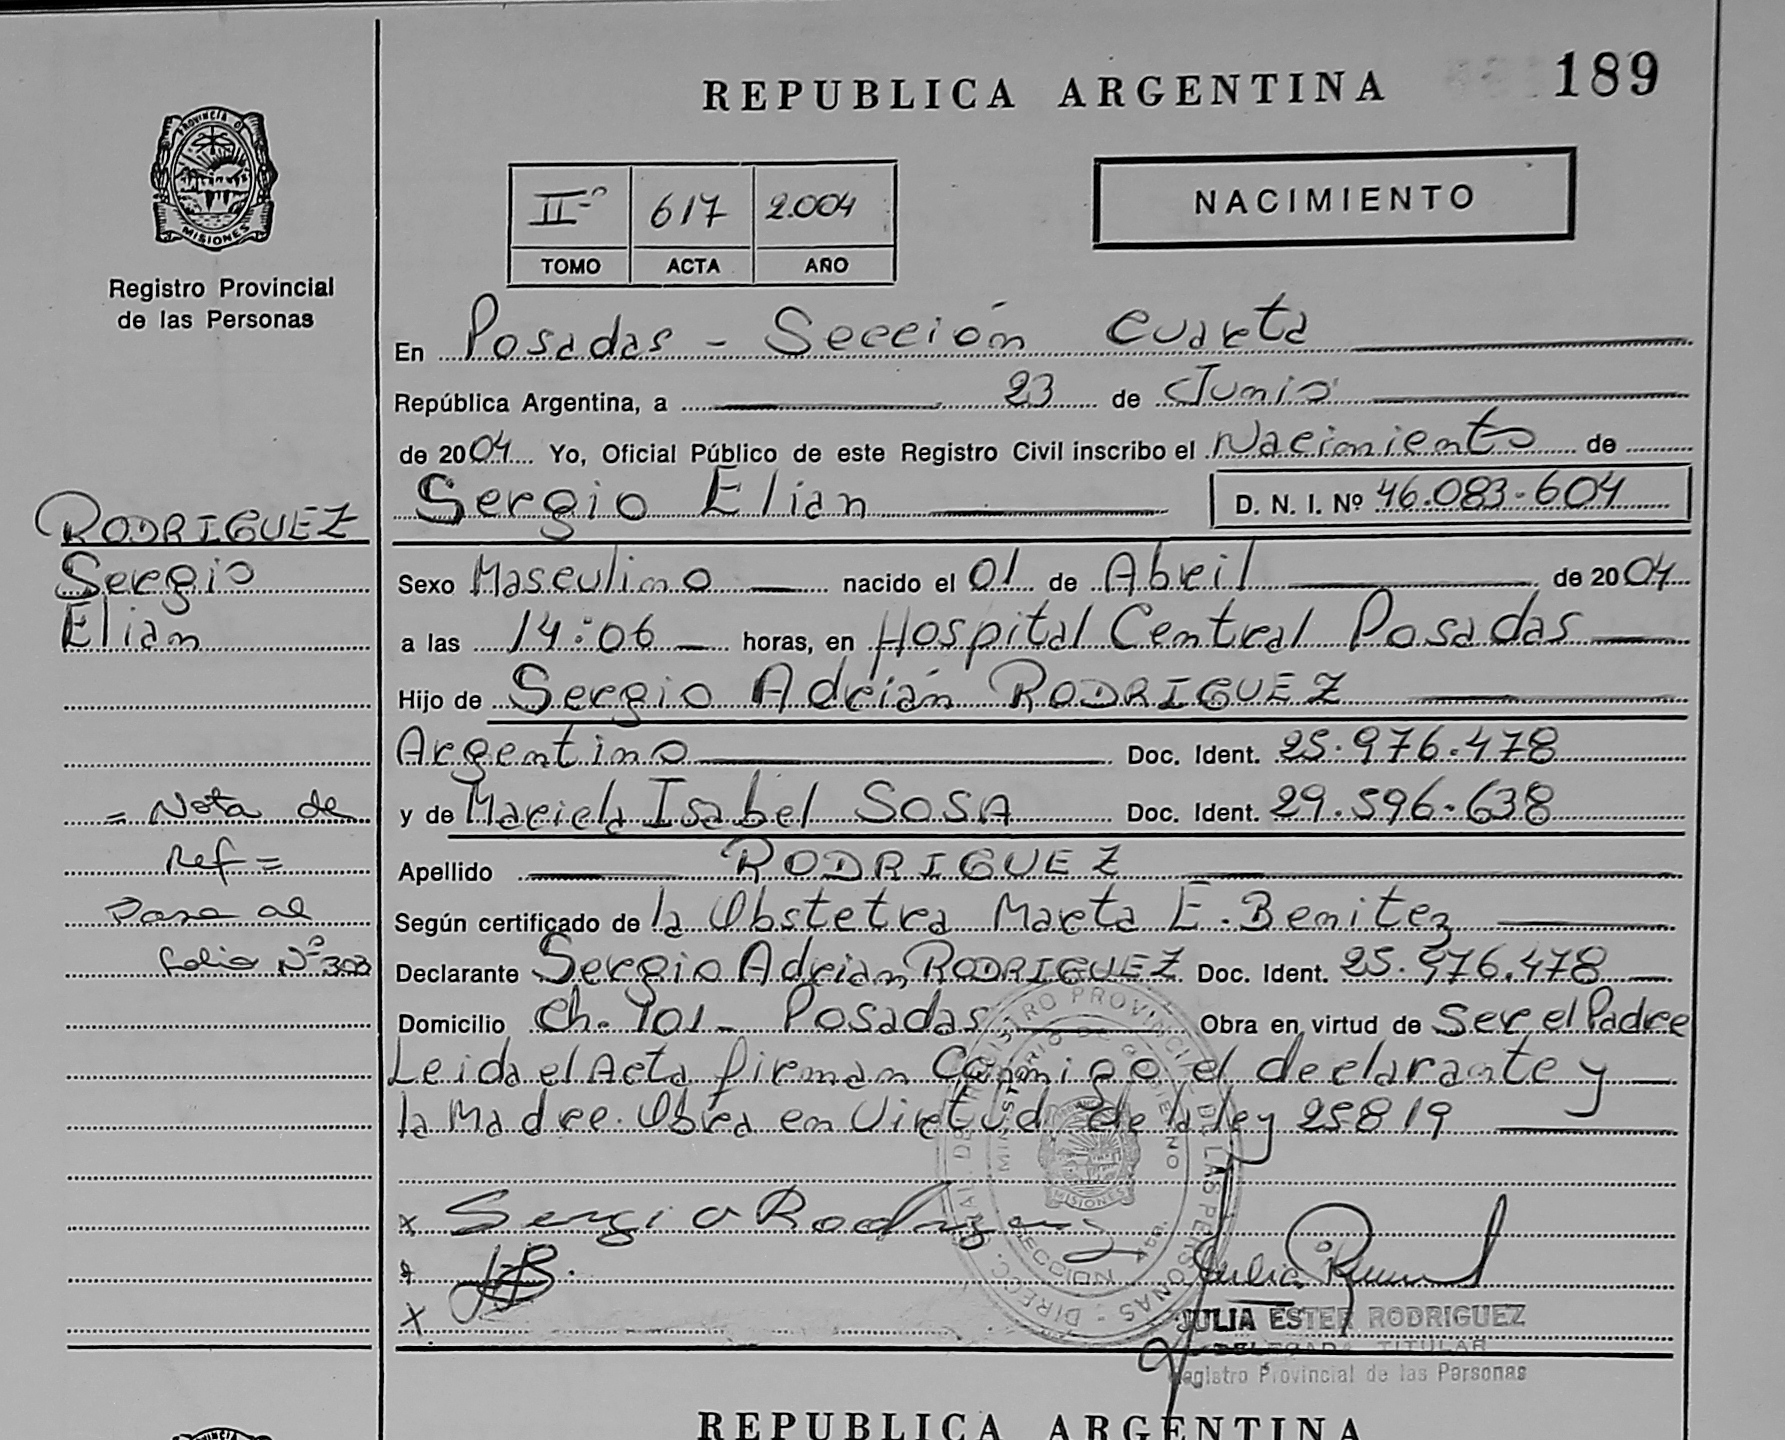 REPUBLICA ARGENTINA
189
PROVINCIA DE
MISIONES
Registro Provincial
de las Personas
IIº 617 2.004
TOMO ACTA AÑO
NACIMIENTO
En Posadas - Sección Cuarta
República Argentina, a 23 de Junio
de 2004 Yo, Oficial Público de este Registro Civil inscribo el Nacimiento de
Sergio Elian D. N. I. Nº 46.083.604
Sexo Masculino nacido el 01 de Abril de 2004
a las 14:06 horas, en Hospital Central Posadas
Hijo de Sergio Adrián RODRIGUEZ
Argentino Doc. Ident. 25.976.478
y de Mariela Isabel SOSA Doc. Ident. 29.596.638
Apellido RODRIGUEZ
Según certificado de la Obstetra Marta E. Benitez
Declarante Sergio Adrian RODRIGUEZ Doc. Ident. 25.976.478
Domicilio Ch. 101 - Posadas Obra en virtud de Ser el Padre
Leida el Acta firman Conmigo el declarante y
la Madre. Obra en Virtud de la ley 25819
RODRIGUEZ
Sergio
Elian
= Nota de
Ref =
Pasa al
folio Nº 303
x Sergio Rodriguez
x
x
JULIA ESTER RODRIGUEZ
DELEGADA TITULAR
Registro Provincial de las Personas
REPUBLICA ARGENTINA